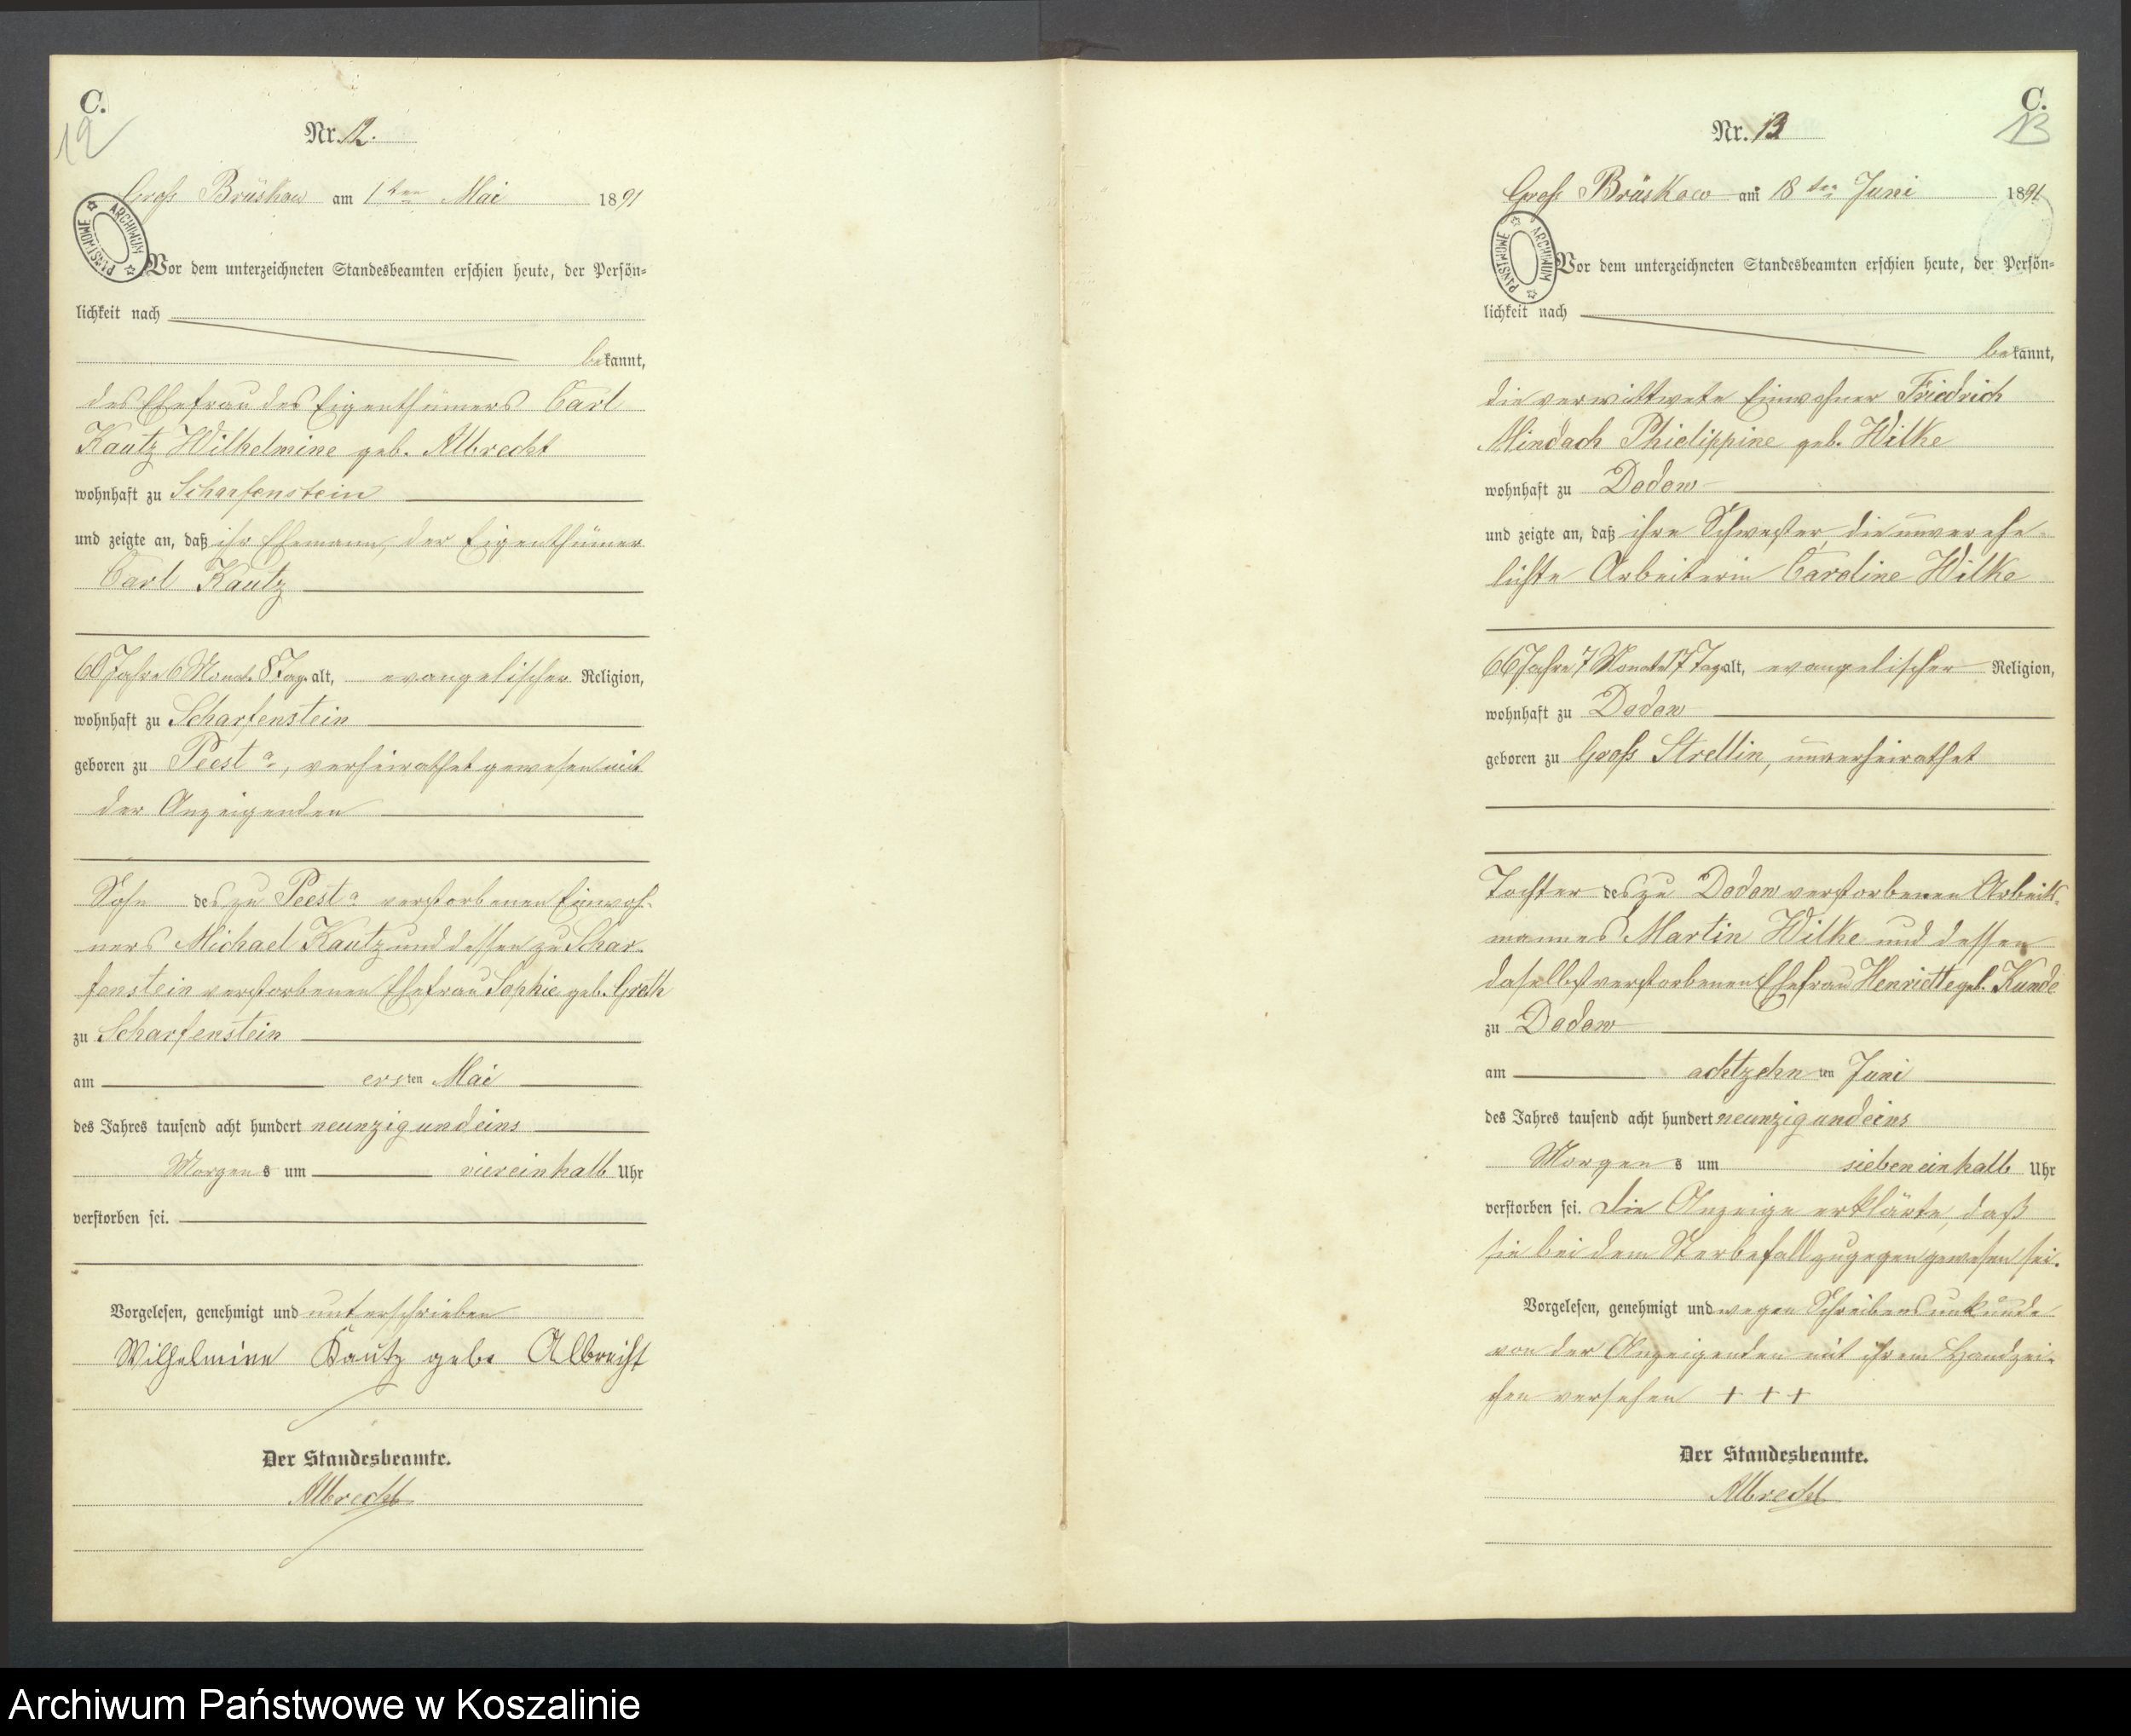 C.
12
Nr. 12.
Groß Brüskow am 1ten Mai 1891
ARCHIWUM PAŃSTWOWE
Vor dem unterzeichneten Standesbeamten erschien heute, der Persön=
lichkeit nach
bekannt,
des Ehefrau des Eigenthümers Carl
Kautz Wilhelmine geb. Albrecht
wohnhaft zu Scharfenstein
und zeigte an, daß ihr Ehemann, der Eigenthümer
Carl Kautz
60 Jahre 6 Monat. 8 Tag. alt, evangelischer Religion,
wohnhaft zu Scharfenstein
geboren zu Peest, verheirathet gewesen mit
der Anzeigenden
Sohn des zu Peest verstorbenen Einwoh-
ners Michael Kautz und dessen zu Schar
fenstein verstorbenen Ehefrau Sophie geb. Greth
zu Scharfenstein
am ersten Mai
des Jahres tausend acht hundert neunzig und eins
Morgens um viereinhalb Uhr
verstorben sei.
Vorgelesen, genehmigt und unterschrieben
Wilhelmine Kautz geb. Albrecht
Der Standesbeamte.
Albrecht
C.
13
Nr. 13
Groß Brüskow am 18ten Juni 1891
ARCHIWUM PAŃSTWOWE
Vor dem unterzeichneten Standesbeamten erschien heute, der Persön=
lichkeit nach
bekannt,
die verwittwete Einwohner Friedrich
Mindach Phielippine geb. Wilke
wohnhaft zu Dodow
und zeigte an, daß ihre Schwester, die unverehe-
lichte Arbeiterin Caroline Wilke
66 Jahre 7 Monate 17 Tag alt, evangelischer Religion,
wohnhaft zu Dodow
geboren zu Groß Strellin, unverheirathet
Tochter des zu Dodow verstorbenen Arbeits-
mannes Martin Wilke und dessen
daselbst verstorbenen Ehefrau Henriette geb. Kunde
zu Dodow
am achtzehnten Juni
des Jahres tausend acht hundert neunzig und eins
Morgens um siebeneinhalb Uhr
verstorben sei. Die Anzeige erklärte, daß
sie bei dem Sterbefall zugegen gewesen sei.
Vorgelesen, genehmigt und wegen Schreibensunkunde
von der Anzeigenden mit ihrem Handzei-
chen versehen + + +
Der Standesbeamte.
Albrecht
Archiwum Państwowe w Koszalinie